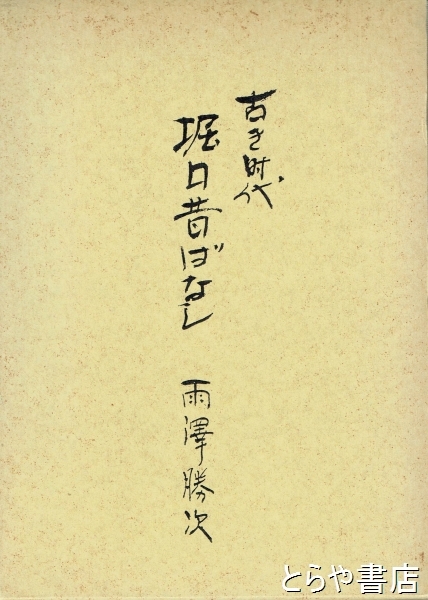 古き时代
堀口昔ばなし
雨澤勝次
とらや書店